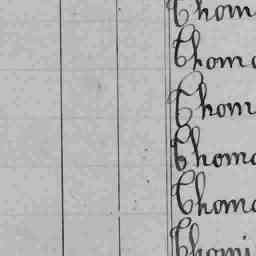 Thom
Thoma
Thom
Thoma
Thoma
Thomi